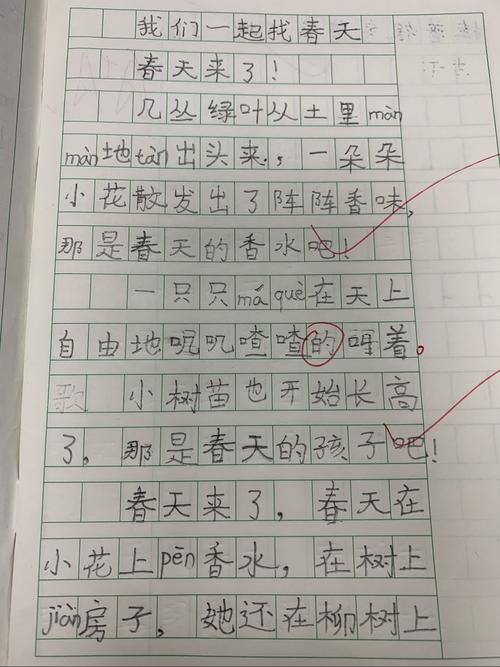 我们一起找春天
春天来了!
几丛绿叶从土里màn
màn地tàn出头来.，一朵朵
小花散发出了阵阵香味，
那是春天的香水吧!
一只只má què在天上
自由地叽叽喳喳的呀着。
歌 小树苗也开始长高
了。那是春天的孩子吧!
春天来了，春天在
小花上pēn香水，在树上
jiàn房子，她还在柳树上